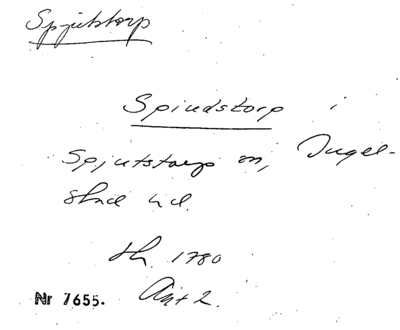 Spjutstorp
Spiudstorp i
Spjutstorps sn, Ingel-
stad hd.
th. 1780
Nr 7655. Akt 2.